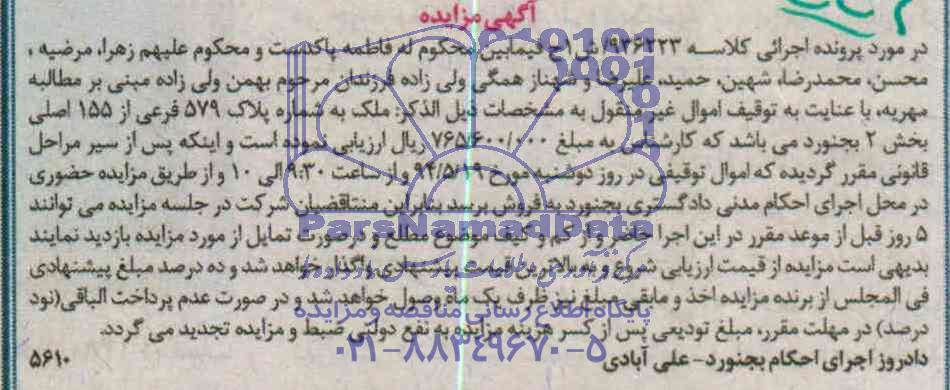 آگهی مزایده
در مورد پرونده اجرائی کلاسه ۹۲۶۲۲۳/ش۱ج فیمابین محکوم له فاطمه پاکدست و محکوم علیهم زهرا، مرضیه ،
محسن، محمدرضا، شهین، حمید، علیرضا و شهناز همگی ولی زاده فرزندان مرحوم بهمن ولی زاده مبنی بر مطالبه
مهریه، با عنایت به توقیف اموال غیر منقول به مشخصات ذیل الذکر: ملک به شماره پلاک ۵۷۹ فرعی از ۱۵۵ اصلی
بخش ۲ بجنورد می باشد که کارشناس به مبلغ ۷۶۵/۶۰۰/۰۰۰ ریال ارزیابی نموده است و اینکه پس از سیر مراحل
قانونی مقرر گردیده که اموال توقیفی در روز دوشنبه مورخ ۹۴/۵/۱۹ و از ساعت ۹:۳۰ الی ۱۰ و از طریق مزایده حضوری
در محل اجرای احکام مدنی دادگستری بجنورد به فروش برسد بنابراین متقاضیان شرکت در جلسه مزایده می توانند
۵ روز قبل از موعد مقرر در این اجرا حاضر و از کم و کیف موضوع مطلع و در صورت تمایل از مورد مزایده بازدید نمایند
بدیهی است مزایده از قیمت ارزیابی شروع و به بالاترین قیمت پیشنهادی واگذار خواهد شد و ده درصد مبلغ پیشنهادی
فی المجلس از برنده مزایده اخذ و مابقی مبلغ نیز ظرف یک ماه وصول خواهد شد و در صورت عدم پرداخت الباقی(نود
درصد) در مهلت مقرر، مبلغ تودیعی پس از کسر هزینه مزایده به نفع دولت ضبط و مزایده تجدید می گردد.
دادورز اجرای احکام بجنورد- علی آبادی
۵۶۱۰
ParsNamadData
پایگاه اطلاع رسانی مناقصه و مزایده
۰۲۱-۸۸۳۴۹۶۷۰-۵